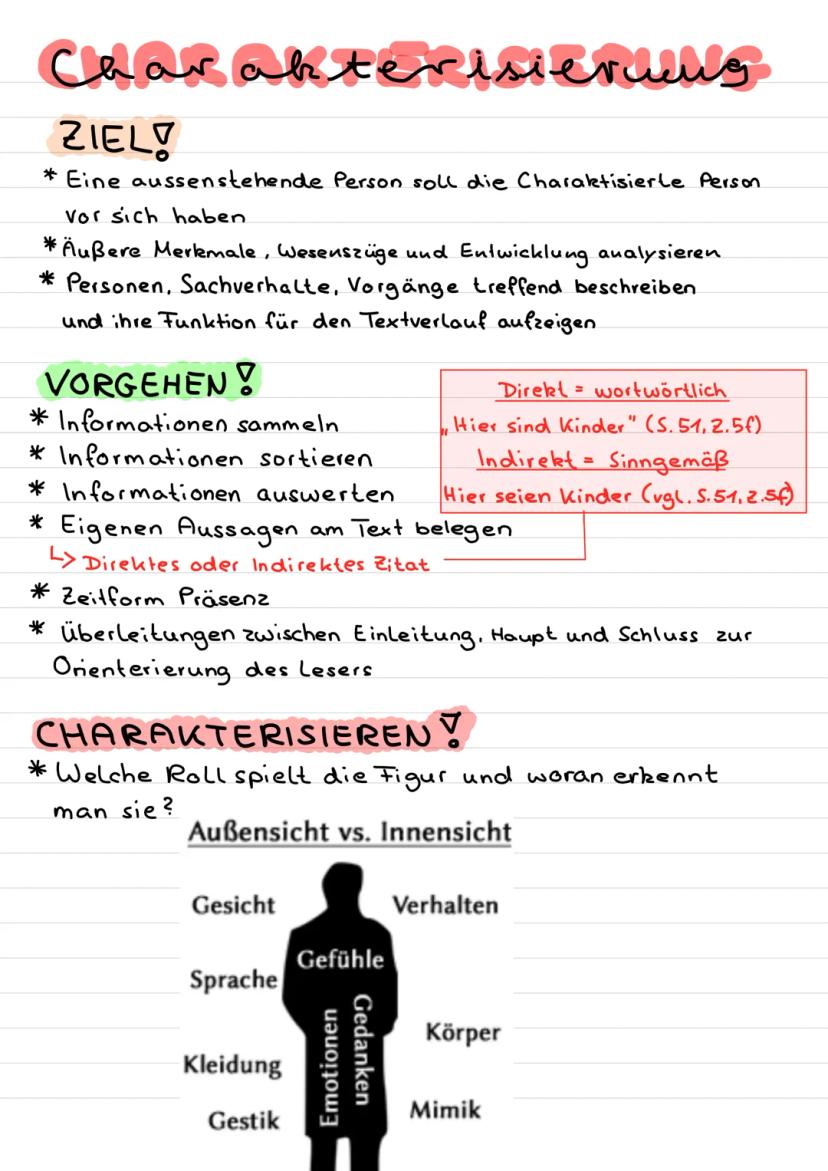 Charakterisierung
ZIEL!
* Eine aussenstehende Person soll die Charaktisierte Person
vor sich haben
* Äußere Merkmale, Wesenszüge und Entwicklung analysieren
* Personen, Sachverhalte, Vorgänge treffend beschreiben
und ihre Funktion für den Textverlauf aufzeigen
VORGEHEN!
* Informationen sammeln
* Informationen sortieren
* Informationen auswerten
* Eigenen Aussagen am Text belegen
↳ Direktes oder Indirektes Zitat
Direkt = wortwörtlich
„Hier sind Kinder" (S. 51, Z. 5f)
Indirekt = Sinngemäß
Hier seien Kinder (vgl. S. 51, Z. 5f)
* Zeitform Präsenz
* Überleitungen zwischen Einleitung, Haupt und Schluss zur
Orienterierung des Lesers
CHARAKTERISIEREN!
* Welche Roll spielt die Figur und woran erkennt
man sie?
Außensicht vs. Innensicht
Gesicht
Verhalten
Gefühle
Sprache
Gedanken
Emotionen
Körper
Kleidung
Mimik
Gestik